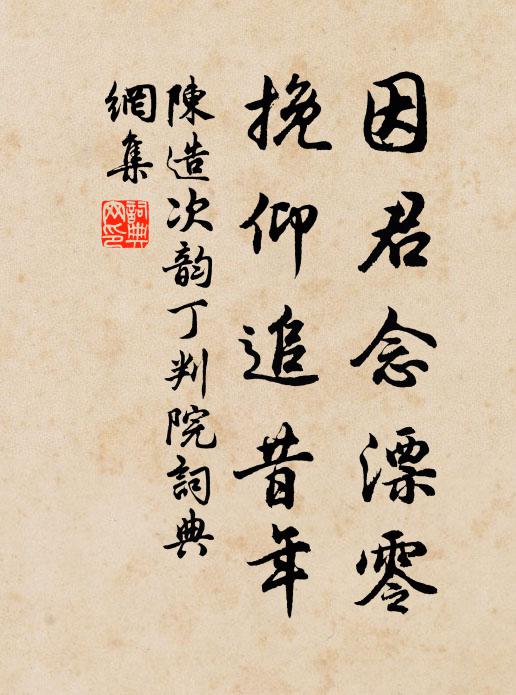 因君念漂零
挽仰追昔年
陳造次韵丁判院詞典
網集
詞典
网印